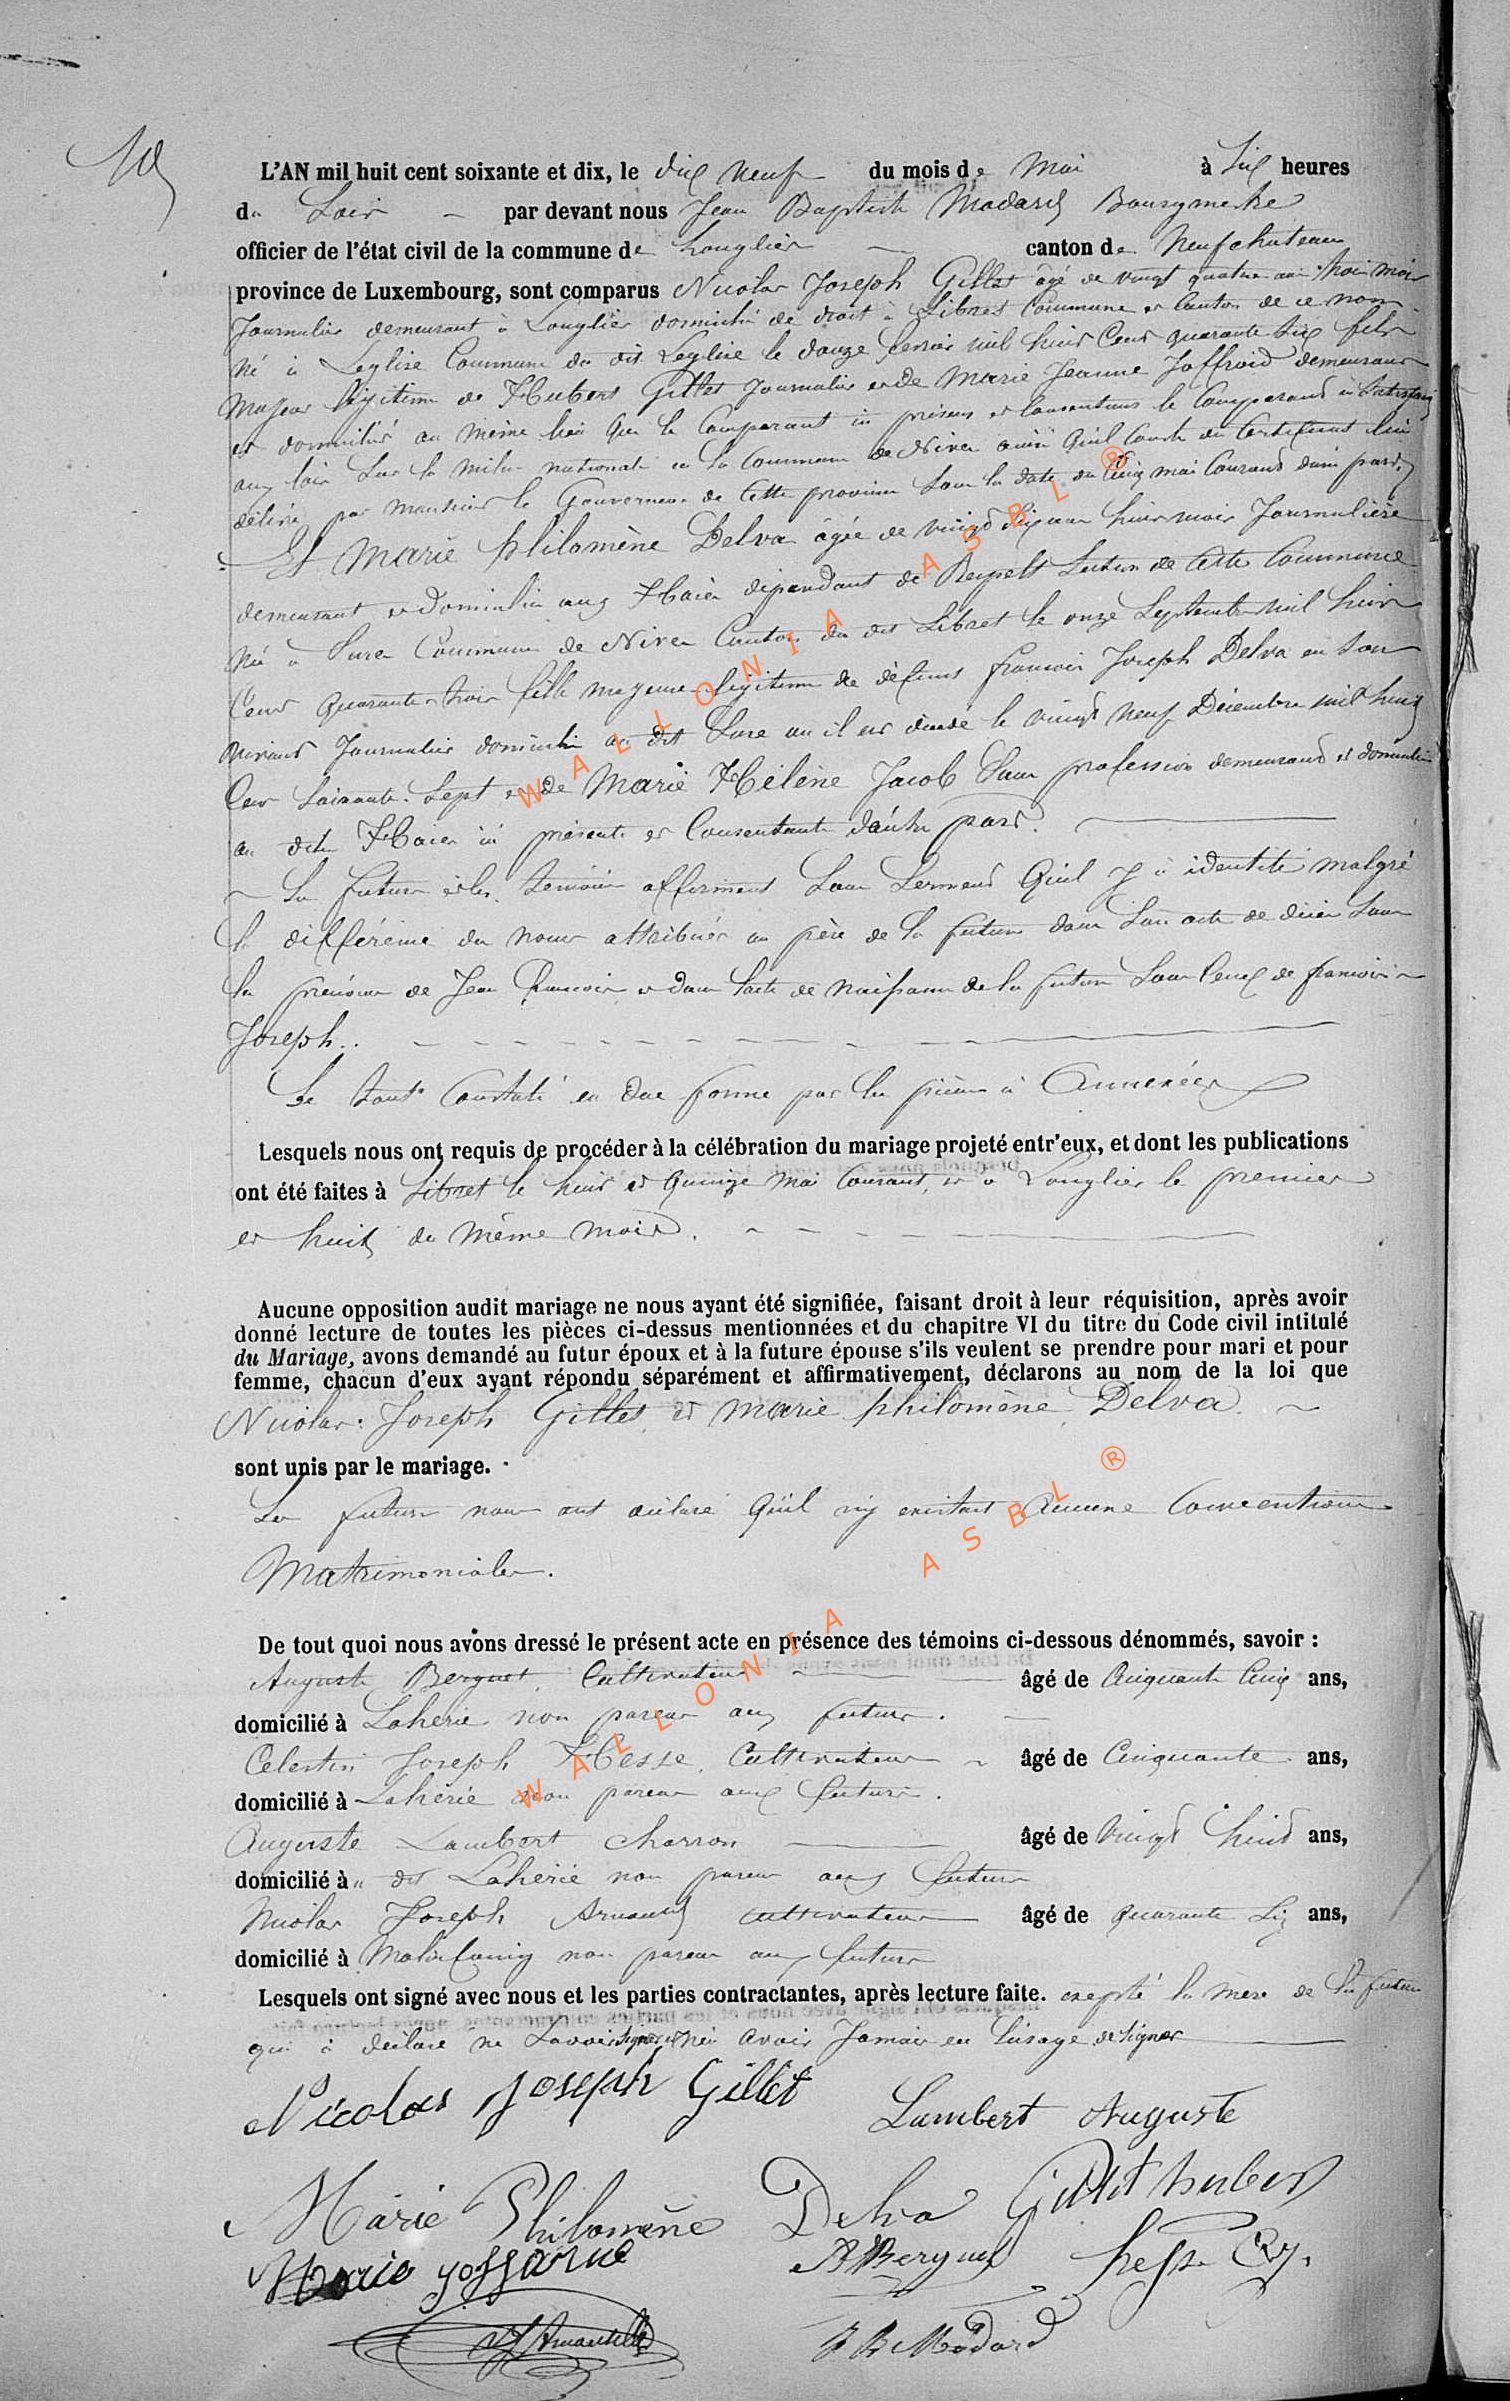 10
L'AN mil huit cent soixante et dix, le dix neuf du mois de Mai à Six heures
du Soir par devant nous Jean Baptiste Medard Bourgmestre
officier de l'état civil de la commune de Longlier canton de Neufchateau
province de Luxembourg, sont comparus Nicolas Joseph Gillet âgé de vingt quatre ans trois mois
Journalier demeurant à Longlier domicilié de droit à Sibret Commune et Canton de ce nom
Né à Léglise Commune du dit Léglise le douze février mil huit Cent quarante six fils
Majeur légitime de Hubert Gillet Journalier et de Marie Jeanne Joffroid demeurant
et domicilié au même lieu que le Comparant ici présens et Consentans le Comparant à satisfait
aux lois sur la milice nationale en la Commune de Nives ainsi qu'il Conste du Certificat lui
délivré par Monsieur le Gouverneur de Cette province sous la date du Cinq mai Courant d'une part,
Et Marie philomène Delva âgée de vingt six ans huit mois Journalière
demeurant et domiciliée aux Haies dépendant de Respelt Section de Cette Commune
Née à Sure Commune de Nives Canton du dit Sibret le onze Septembre mil huit
Cent quarante trois fille majeure légitime de défunt francois Joseph Delva en son
vivant Journalier domicilié au dit Sure où il est décédé le vingt neuf Décembre mil huit
Cent Soixante Sept et de Marie Hélène Jacob Sans profession demeurant et domiciliée
au dit Haies ici présente et Consentante d'autre part.
Les futurs et les témoins affirment Sous Serment Qu'il y a identité malgré
la différence du nom attribués au père de la future dans son acte de décès sous
les prénoms de Jean francois et dans l'acte de naissance de la future sous Ceux de francois
Joseph.
Le tout Constaté en due forme par les pièces ci Annexées
Lesquels nous ont requis de procéder à la célébration du mariage projeté entr'eux, et dont les publications
ont été faites à Sibret le huit et Quinze Mai Courant, et à Longlier le premier
et huit du même mois.
Aucune opposition audit mariage ne nous ayant été signifiée, faisant droit à leur réquisition, après avoir
donné lecture de toutes les pièces ci-dessus mentionnées et du chapitre VI du titre du Code civil intitulé
du Mariage, avons demandé au futur époux et à la future épouse s'ils veulent se prendre pour mari et pour
femme, chacun d'eux ayant répondu séparément et affirmativement, déclarons au nom de la loi que
Nicolas Joseph Gillet et Marie philomène Delva
sont unis par le mariage.
Les futurs nous ont déclaré Qu'il n'y existait Aucune Conventions
Matrimoniales.
De tout quoi nous avons dressé le présent acte en présence des témoins ci-dessous dénommés, savoir :
Auguste Berguet, Cultivateur âgé de Cinquante Cinq ans,
domicilié à Lahérie non parent aux futurs.
Celestin Joseph Hesse, Cultivateur âgé de Cinquante ans,
domicilié à Lahérie non parent aux futurs.
Auguste Lambert Charron âgé de vingt huit ans,
domicilié à u dit Lahérie non parent aux futurs
Nicolas Joseph Arnould Cultivateur âgé de quarante Six ans,
domicilié à non parent aux futurs
Lesquels ont signé avec nous et les parties contractantes, après lecture faite. excepté la mère de la future
qui à déclaré ne Savoir signer et n'en avoir Jamais eu l'usage de signer
Nicolas Joseph Gillet Lambert Auguste
Marie Philomène Delva Gillet hubert
Marie A Berguet hesse C. J.
J B Medard
WALLONIA ASBL ®
WALLONIA ASBL ®